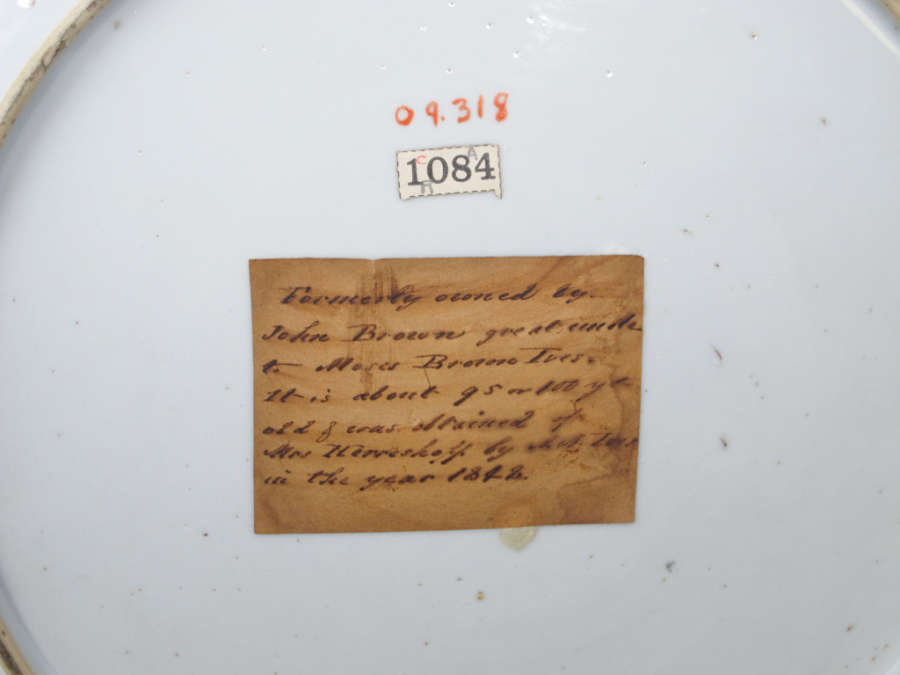 09.318
1084
C A
R
Formerly owned by.
John Brown great uncle
to Moses Brown Ives.
It is about 95 or 100 yr
old & was obtained of
Mrs Herreshoff by Ives
in the year 1842.